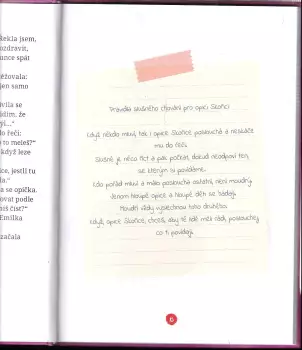 Řekla jsem,
ozdravit,
unce spát
ěžovala:
jen samo
vila se
idím, že
yi..."
do řeči:
j to meleš?"
když leze
ce, jestli tu
la."
a se opička.
ovat podle
íš číst?"
Emilka
začala
Pravidla slušného chování pro opici Skořici
Když někdo mluví, tak i opice Skořice poslouchá a neskáče
mu do řeči.
Slušné je něco říct a pak počkat, dokud neodpoví ten,
se kterým si povídáme.
Kdo pořád mluví a málo poslouchá ostatní, není moudrý.
Jenom hloupé opice a hloupé děti se hádají.
Moudří vždy vyslechnou toho druhého.
Když, opice Skořice, chceš, aby tě lidé měli rádi, poslouchej,
co ti povídají.